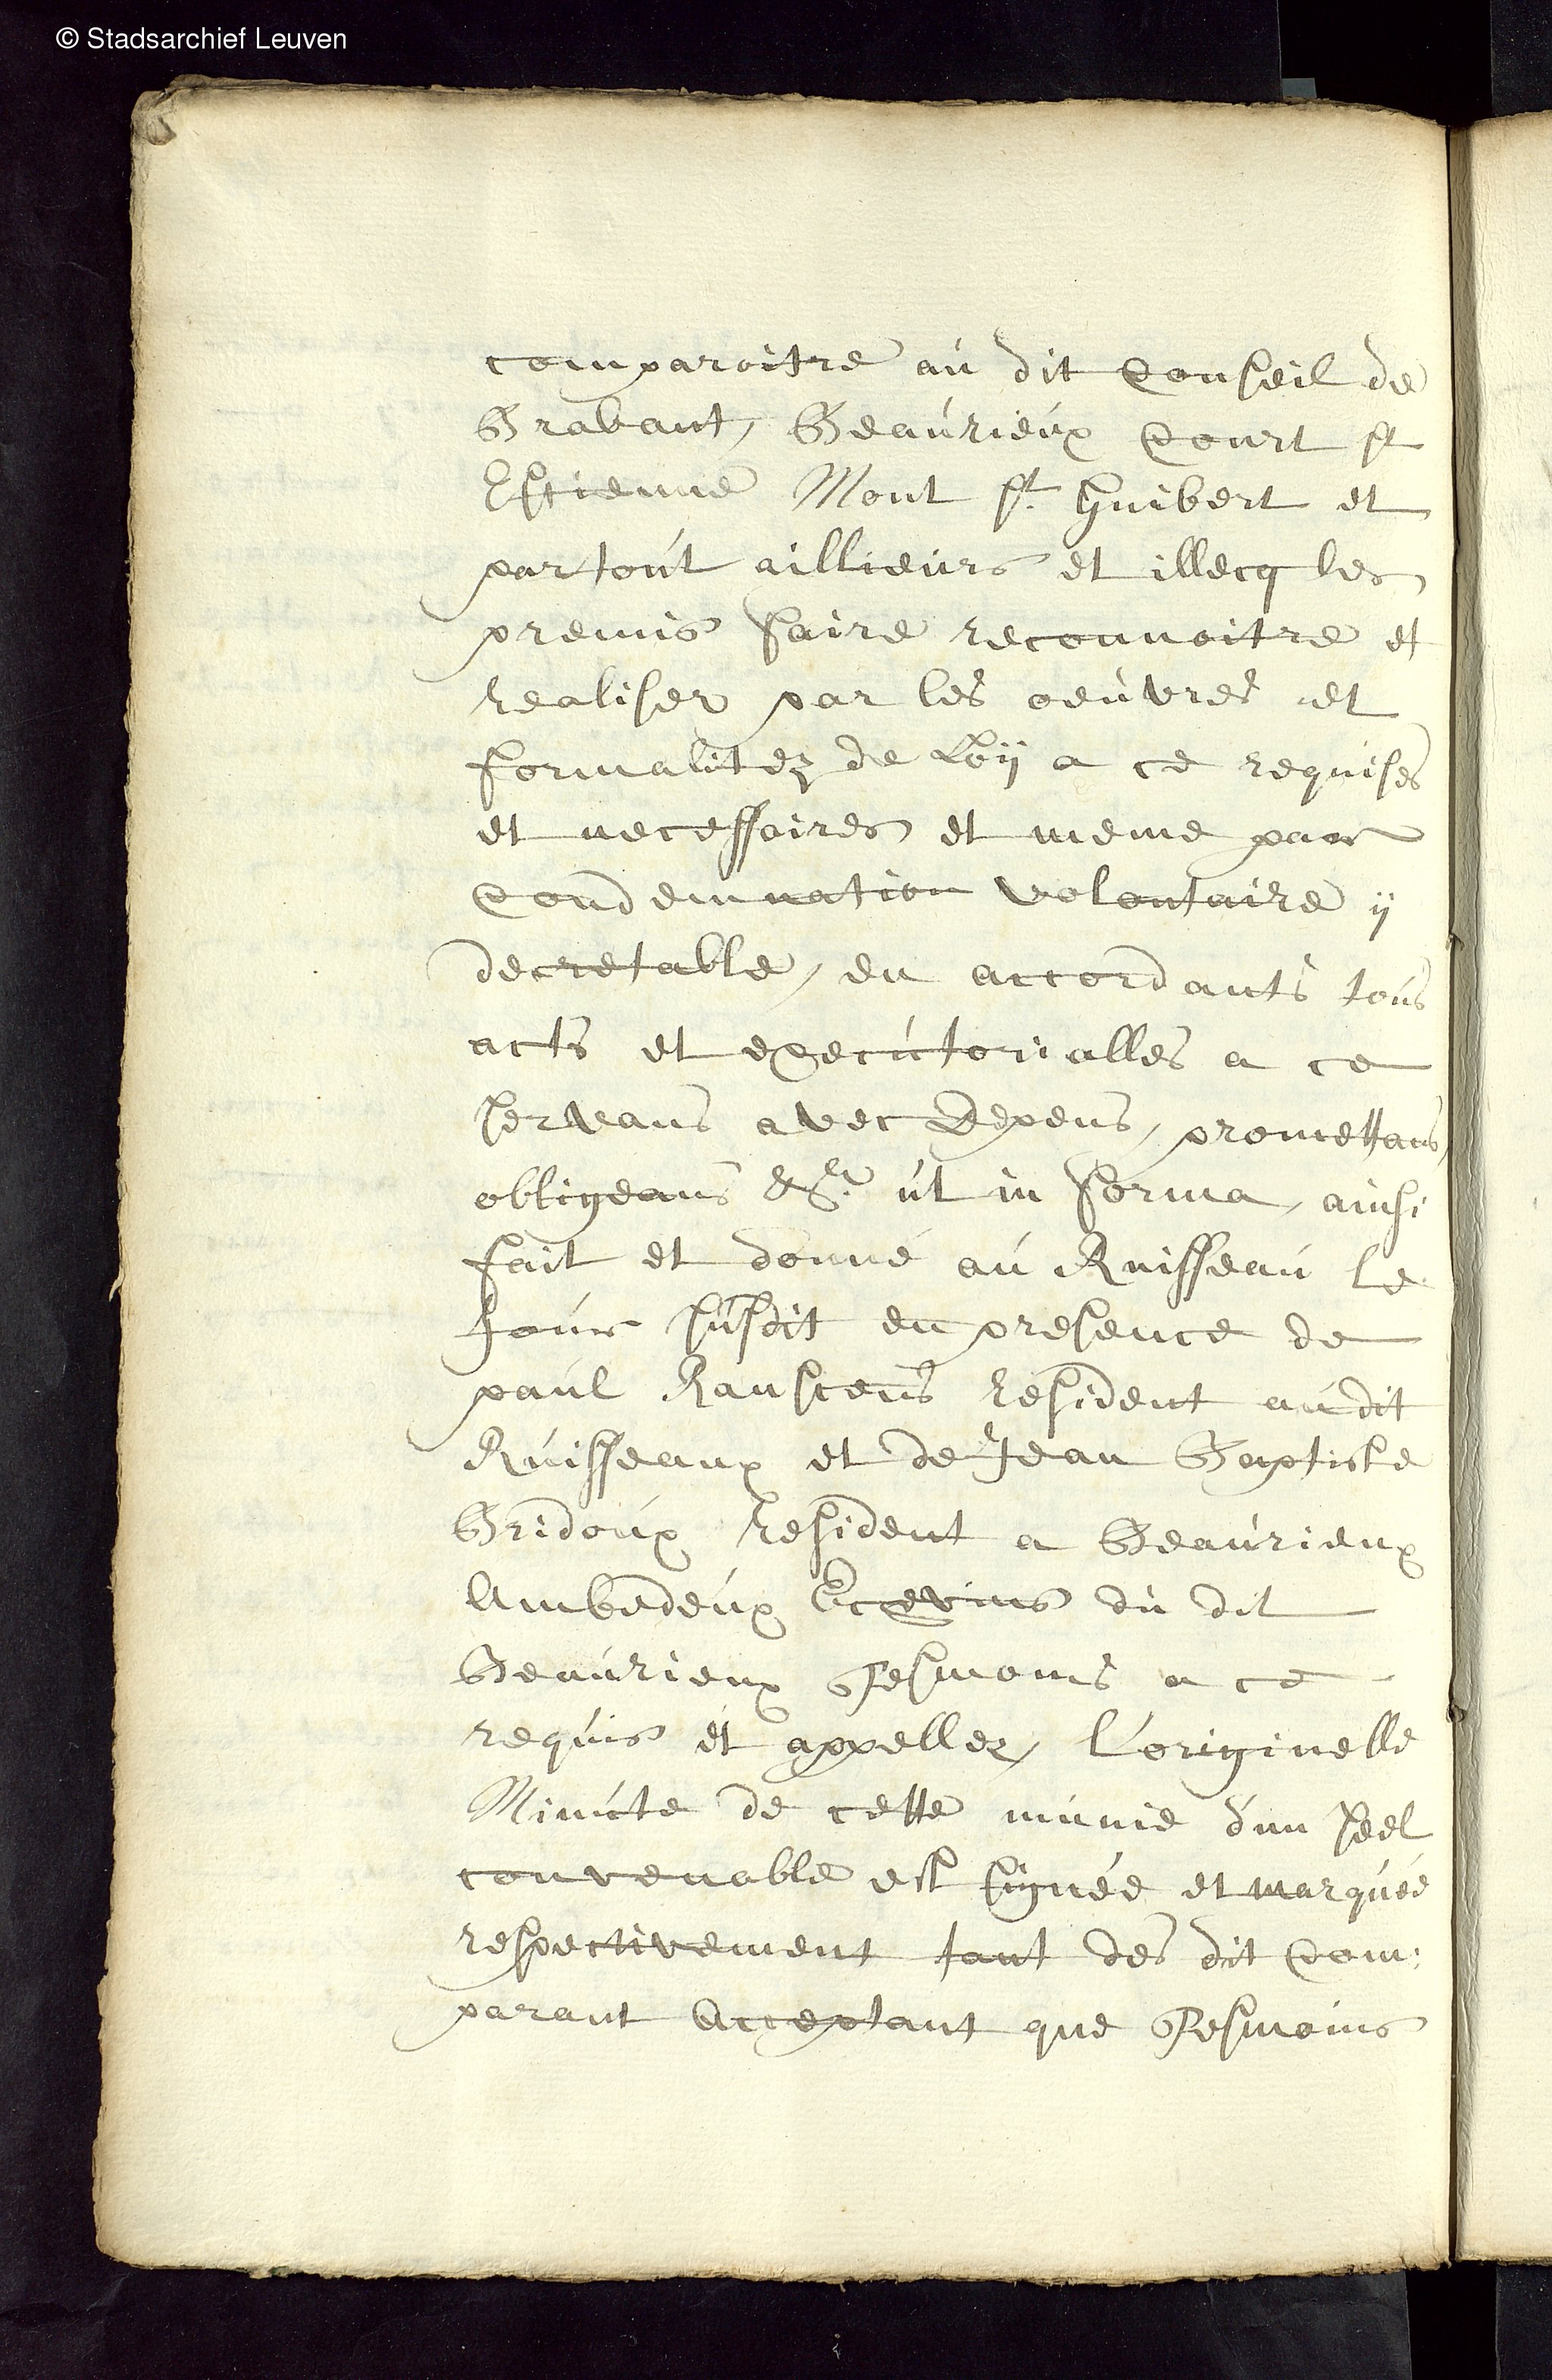 © Stadsarchief Leuven
comparoitre aú dit Conseil de
Brabant, Beaúrieúx Court st
Estienne Mont st. Guibert et
partoút aillieúrs et illecq les
premis faire reconnoitre et
realiser par les oeúvres et
formalitez de Loÿ a ce requises
et necessaires et meme paar
Condemnation volontaire ÿ
decretable, en accordants toús
acts et execútorialles a ce
servans avec Depens, promettans,
obligeans &ca. út in forma, ainsi
fait et donné aú Ruisseaú le
Joúr súsdit en presence de
paúl Ranscens resident aúdit
Rúisseaux et de Jean Baptiste
Bridoúx resident a Beaúrieux
Ambedeúx Ecevins dú dit
Beaúrieux Tesmoins a ce
reqúis et appellez, L'originelle
Minúcte de cette múnie d'un seel
convenable est signée et marqúée
respectivement tant des dit Com:
parant Acceptant que Tesmoins